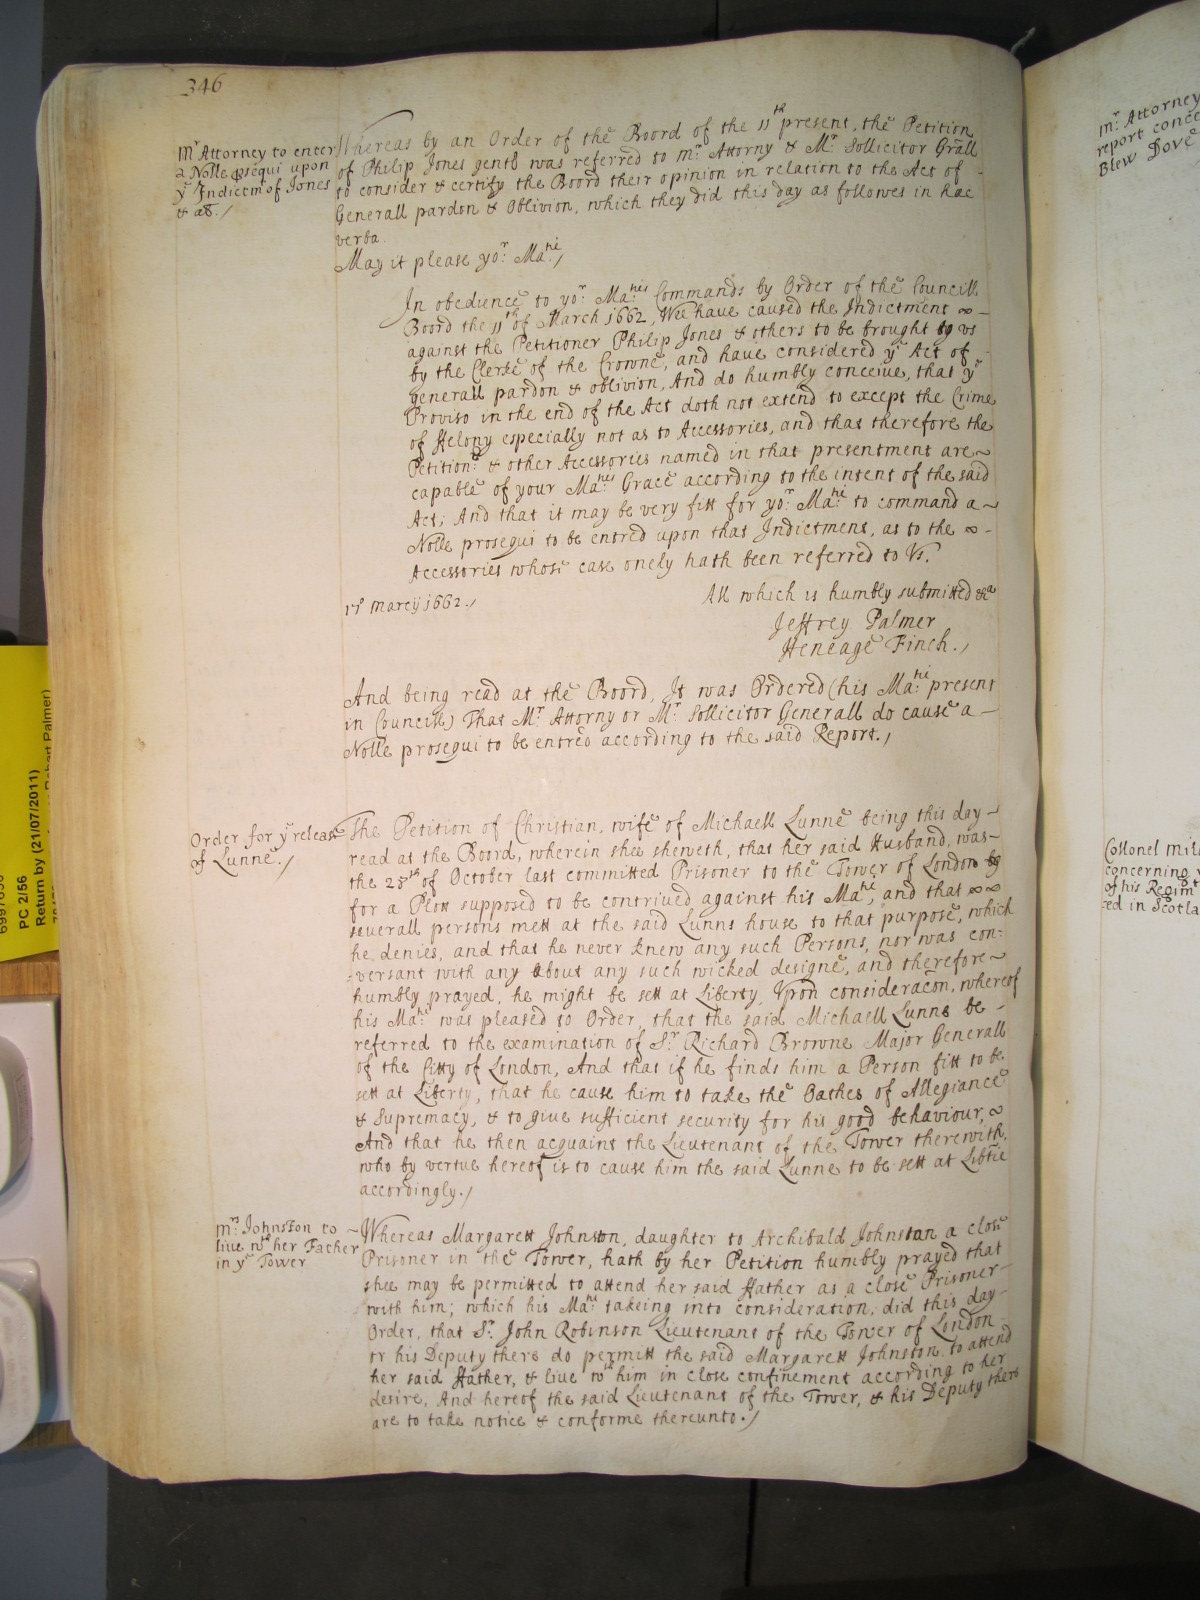 346
Mr Attorney to enter
a Nolle psequi upon
ye Indictmt of Jones
& al./
Whereas by an Order of the Board of the 11th present, the Petition
of Philip Jones gent was referred to mr Attorny & Mr Sollicitor Grall
to consider & certify the Board their opinion in relation to the Act of -
Generall pardon & Oblivion, which they did this day as followes in hæc
verba.
May it please yor Matie,/
In obedience to yor Maties Commands by Order of the Councill
Board the 11th of March 1662, Wee have caused the Indictment ∞ -
against the Petitioner Philip Jones & others to be brought to us
by the Clerke of the Crowne, and have considered ye Act of -
generall pardon & oblivion, And do humbly conceive, that ye
Proviso in the end of the Act doth not extend to except the Crime
of Felony especially not as to Accessories, and that therefore the
Petitionr & other Accessories named in that presentment are ~
capable of your Maties Grace according to the intent of the said
Act; And that it may be very fitt for yor Matie to command a ~
Nolle prosequi to be entred upon that Indictment, as to the ∞ -
Accessories whose case onely hath been referred to Vs.
All which is humbly submitted &a
17° marcij 1662./
Jeffrey Palmer
Heneage Finch./
And being read at the Board, It was Ordered (his Matie present
in Councill) That Mr Attorny or Mr Sollicitor Generall do cause a -
Nolle prosequi to be entred according to the said Report./
Order for ye release
of Lunne./
The Petition of Christian, wife of Michaell Lunne being this day -
read at the Board, wherein shee sheweth, that her said Husband, was -
the 28th of October last committed Prisoner to the Tower of London
for a Plott supposed to be contrived against his Matie, and that ∞ ∞
severall persons mett at the said Lunns house to that purpose, which
he denies, and that he never knew any such Persons, nor was con:
:versant with any about any such wicked designe, and therefore ~
humbly prayed, he might be sett at Liberty, Vpon consideracon, whereof
his Matie was pleased to Order, that the said Michaell Lunne be -
referred to the examination of Sr Richard Browne Major Generall
of the Citty of London, And that if he finds him a Person fitt to be
sett at Liberty, that he cause him to take the Oathes of Allegiance
& Supremacy, & to give sufficient security for his good behaviour, ∞
And that he then acquaint the Lieutenant of the Tower therewith,
who by vertue hereof is to cause him the said Lunne to be sett at Libtie
accordingly./
mrs Johnston to ~
live wth her Father
in ye Tower
Whereas Margarett Johnston, daughter to Archibald Johnstan a close
Prisoner in the Tower, hath by her Petition humbly prayed that
shee may be permitted to attend her said Father as a close Prisoner -
with him; which his Matie takeing into consideration, did this day -
Order, that Sr John Robinson Lieutenant of the Tower of London -
or his Deputy there do permitt the said Margarett Johnston to attend
her said Father, & live wth him in close confinement according to her
desire, And hereof the said Lieutenant of the Tower, & his Deputy there
are to take notice & conforme thereunto./
mr Attorney
report conce
Blew Dove
Collonel Mil
concerning
of his Regimt
ed in Scotla
PC 2/56
Return by (21/07/2011)
Robert Palmer)